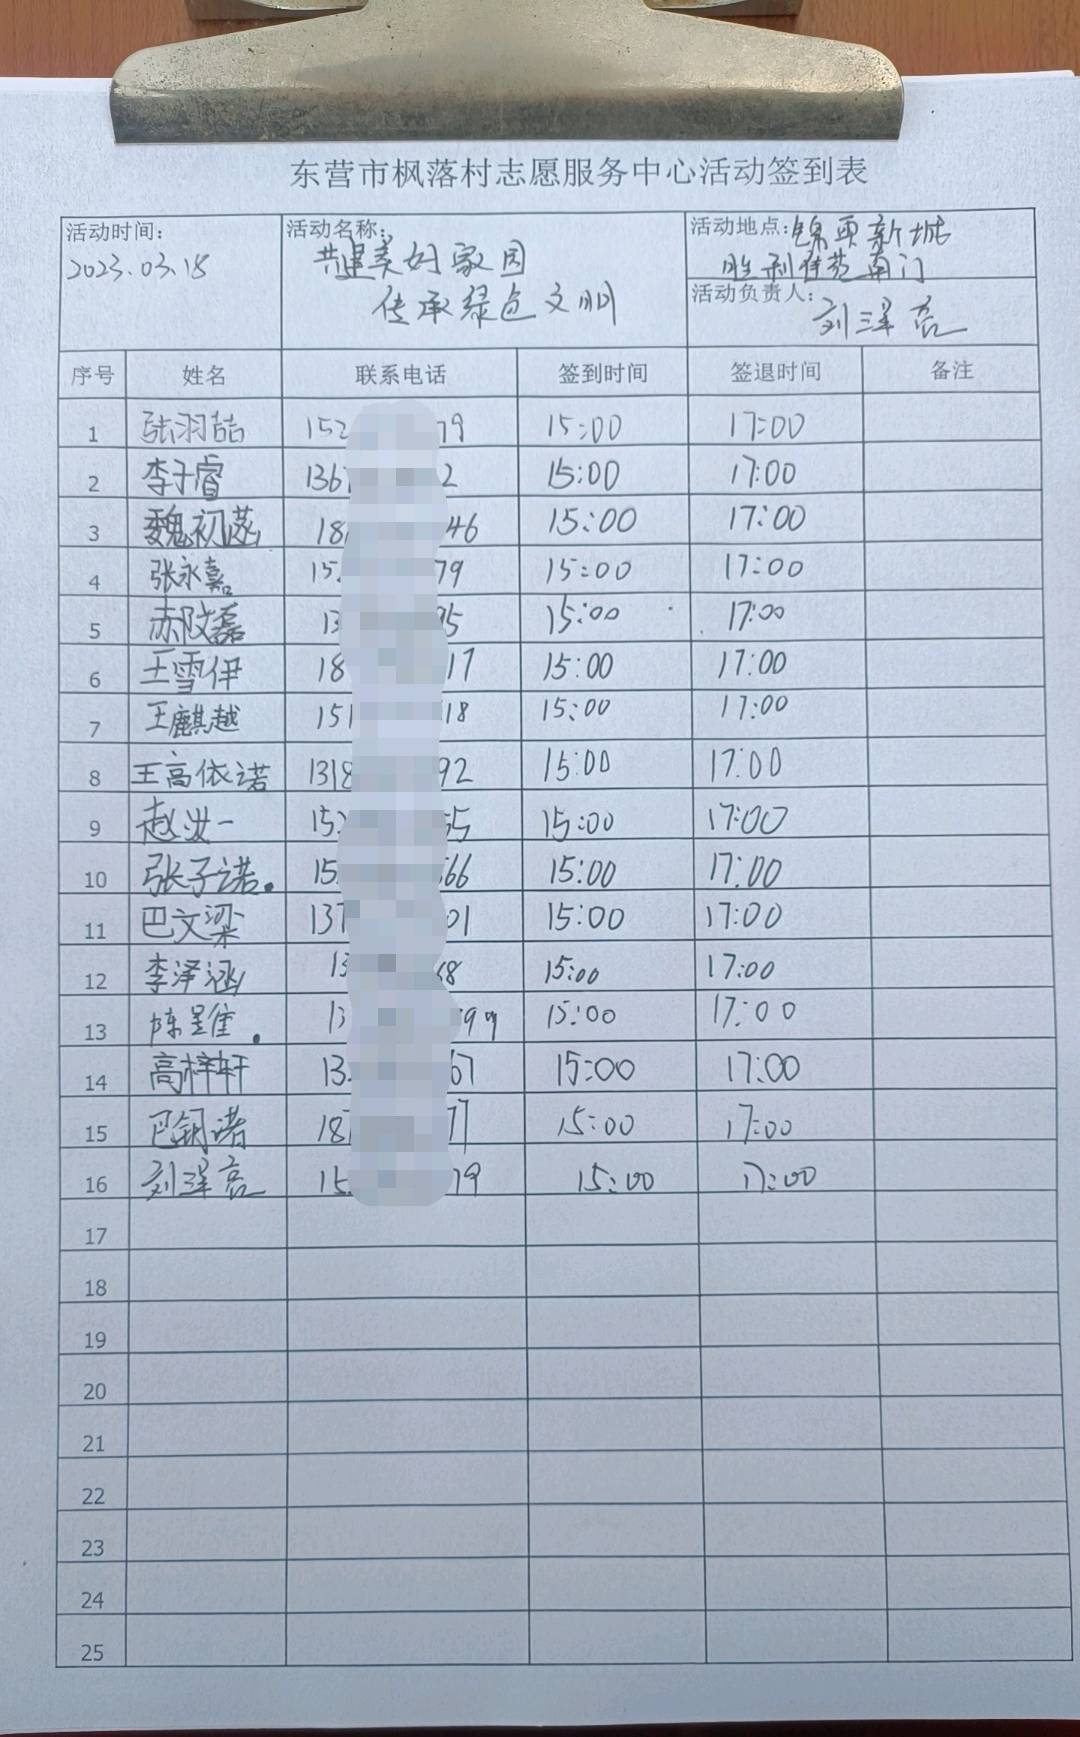 东营市枫落村志愿服务中心活动签到表
活动时间: 2023.03.18
活动名称: 共建美好家园
传承绿色文明
活动地点: 锦苑新城
胜利佳苑南门
活动负责人: 刘泽亮
序号 姓名 联系电话 签到时间 签退时间 备注
1 张羽喆 152 79 15:00 17:00
2 李子睿 136 2 15:00 17:00
3 魏初菡 18 46 15:00 17:00
4 张永嘉 15 79 15:00 17:00
5 13 95 15:00 17:00
6 王雪伊 18 17 15:00 17:00
7 王麒越 151 18 15:00 17:00
8 王高依诺 1318 92 15:00 17:00
9 赵 一 15 55 15:00 17:00
10 张子诺. 15 66 15:00 17:00
11 巴文梁 137 01 15:00 17:00
12 李泽涵 13 68 15:00 17:00
13 陈 . 13 99 15:00 17:00
14 高梓轩 13 67 15:00 17:00
15 巴 诺 18 77 15:00 17:00
16 刘泽亮 15 79 15:00 17:00
17
18
19
20
21
22
23
24
25